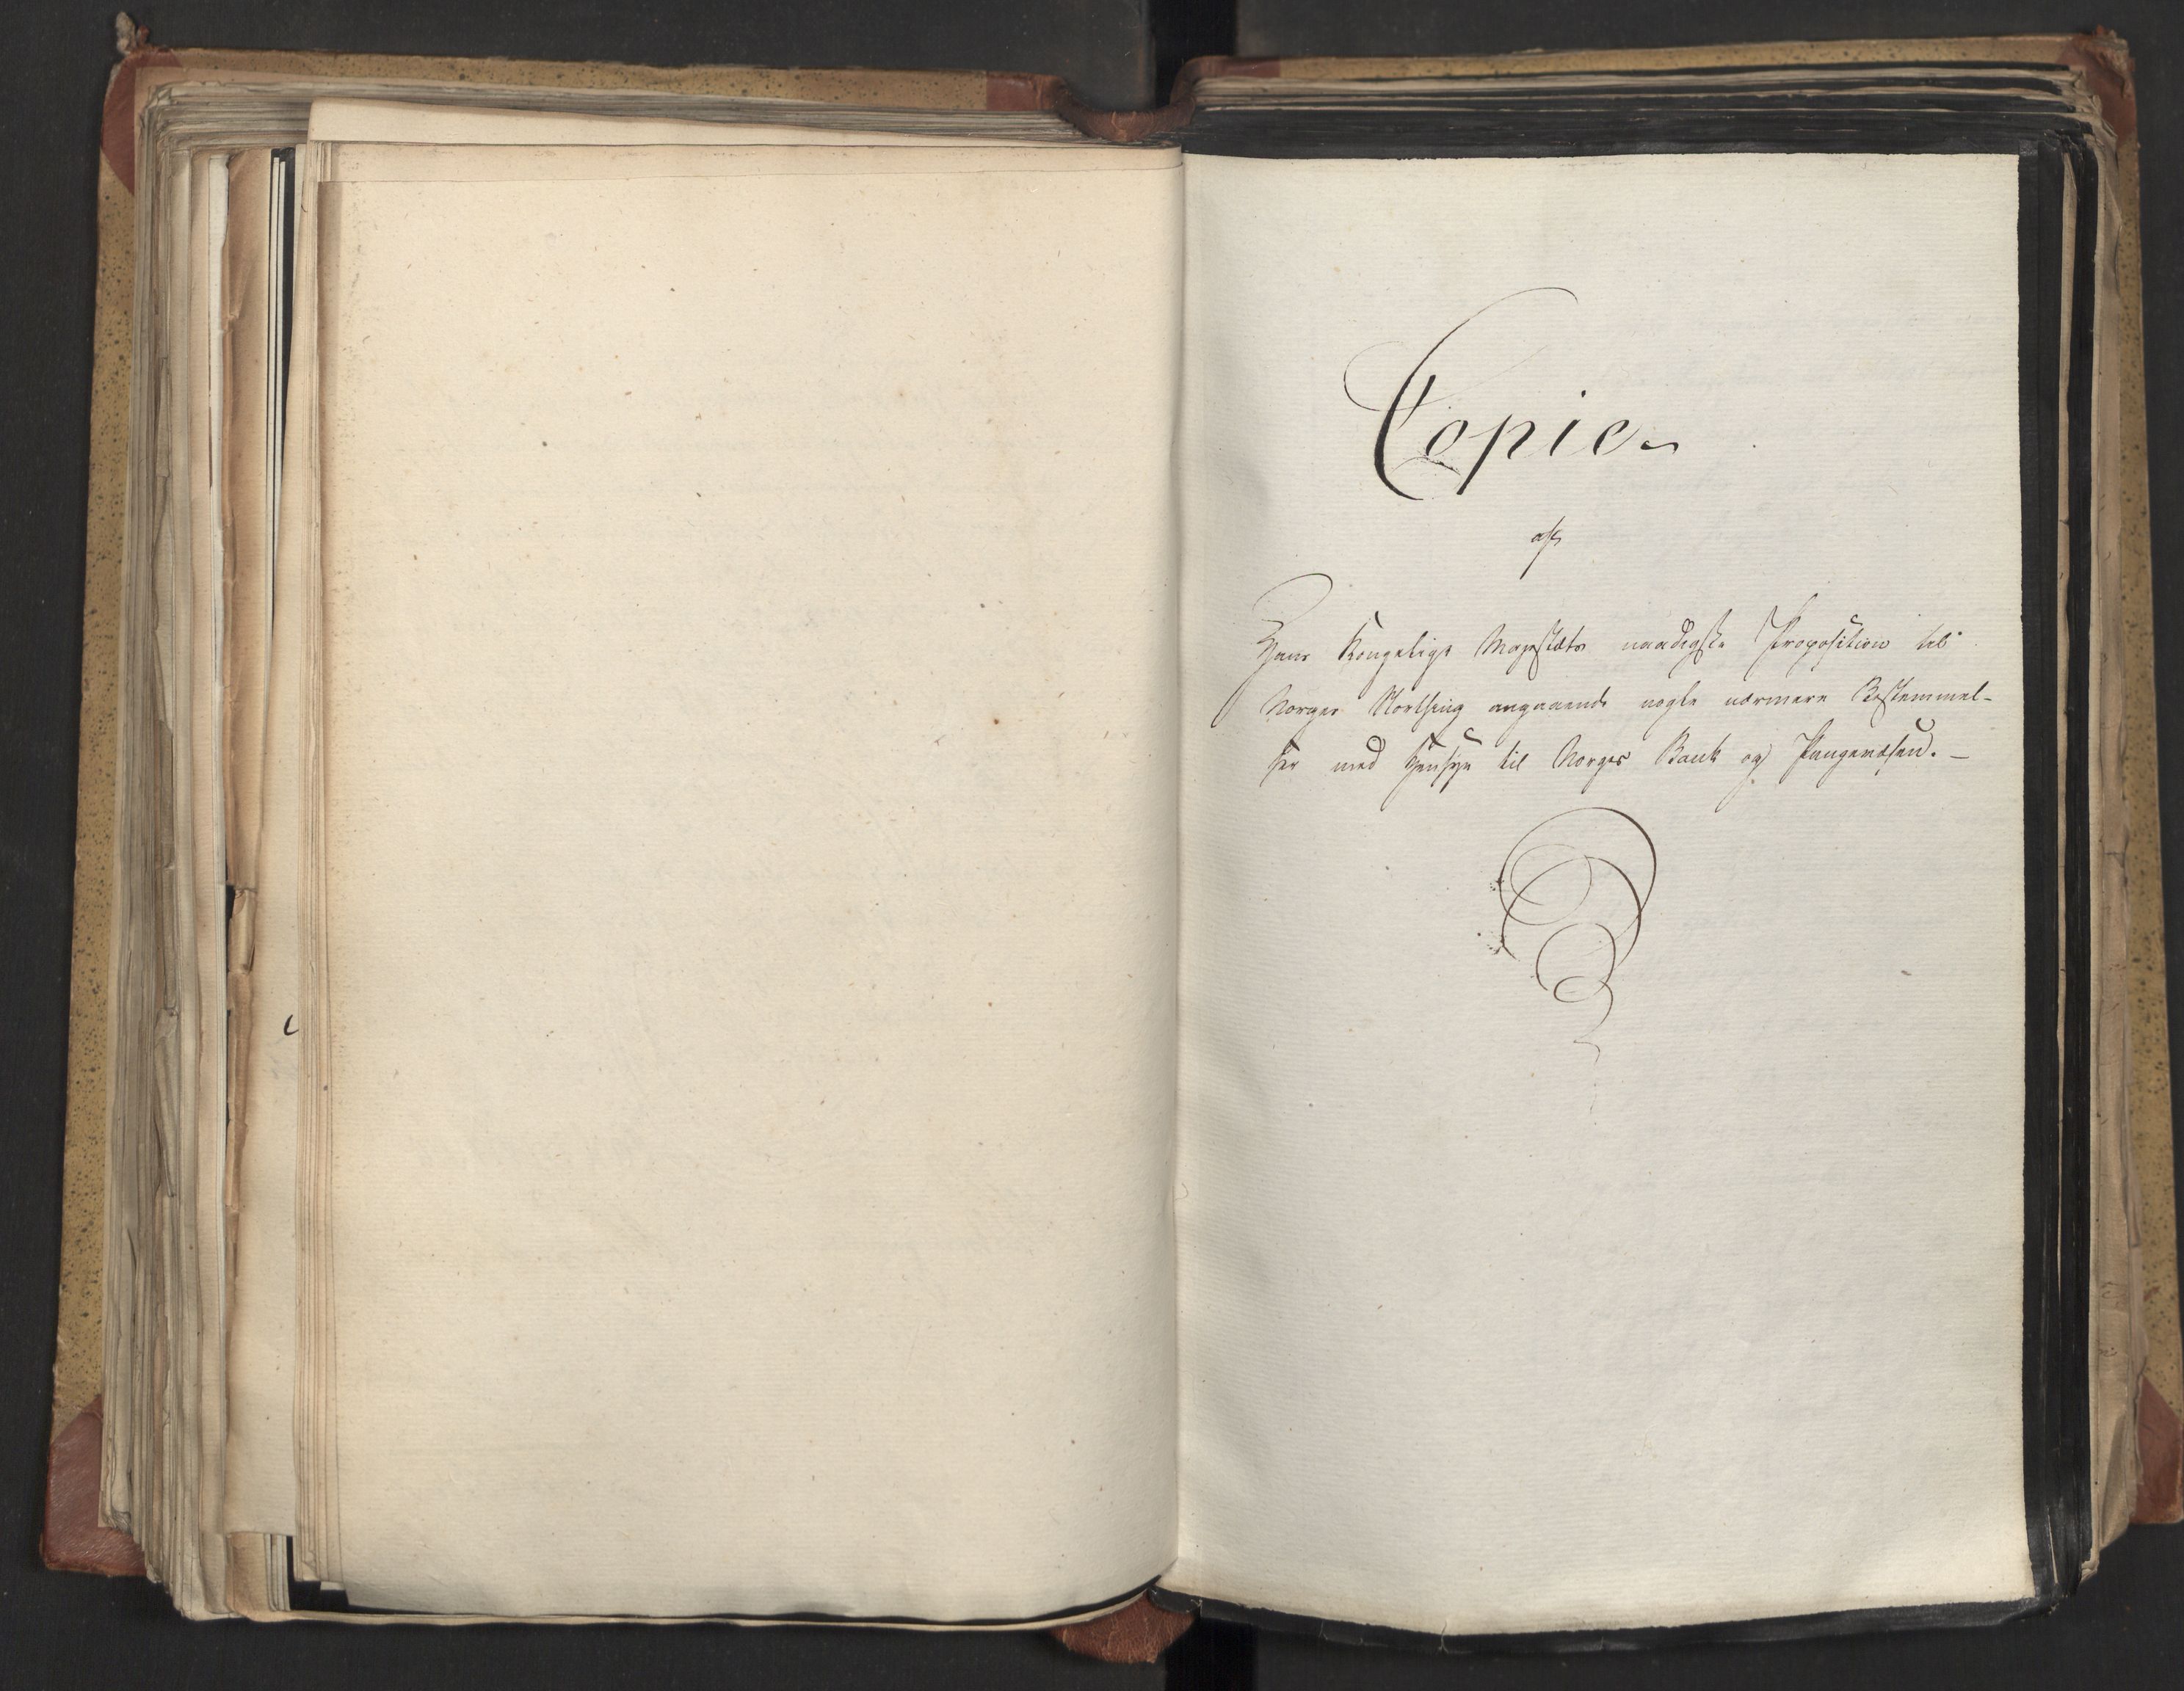 Copie
af
Hans Kongelige Majestæts naadigste Proposition til
Norges Storthing angaaende nogle nærmere Bestemmel-
ser med Hensyn til Norges Bank og Pengevæsen. —